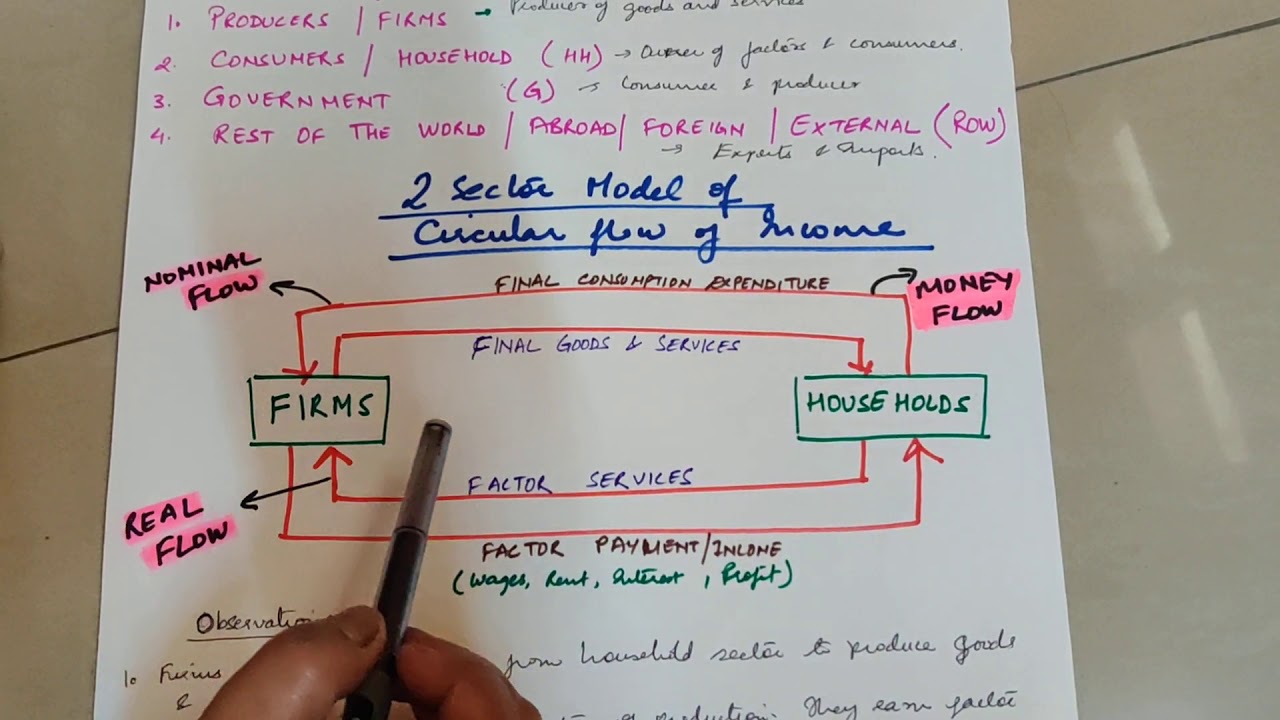 1. PRODUCERS / FIRMS → Producer of goods and services
2. CONSUMERS / HOUSEHOLD (HH) → Owner of factors & consumers.
3. GOVERNMENT (G) → Consumer & producer
4. REST OF THE WORLD / ABROAD / FOREIGN / EXTERNAL (ROW)
→ Exports & Imports.
2 Sector Model of
Circular flow of Income
NOMINAL
FLOW
FINAL CONSUMPTION EXPENDITURE
MONEY
FLOW
FINAL GOODS & SERVICES
FIRMS
HOUSEHOLDS
FACTOR SERVICES
REAL
FLOW
FACTOR PAYMENT/INCOME
(Wages, Rent, Interest, Profit)
1. Firms from household sector to produce goods
& production. They earn factor